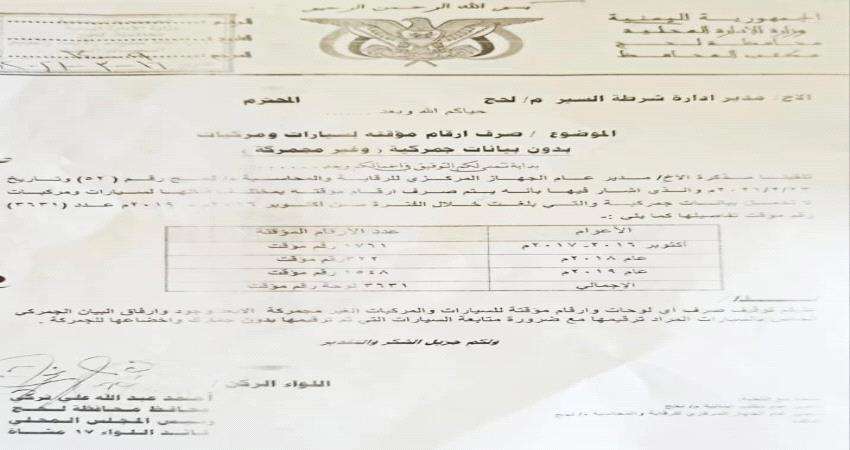 بسم الله الرحمن الرحيم
الجمهورية اليمنية
وزارة الإدارة المحلية
محافظة لحج
مكتب المحافظ
الاخ/ مدير ادارة شرطة السير م/ لحج المحترم
حياكم الله وبعد .......
الموضوع / صرف ارقام مؤقته لسيارات ومركبات
بدون بيانات جمركية (وغير مجمركة)
بداية نتمنى لكم التوفيق في اعمالكم وبعد
تلقينا مذكرة الاخ/ مدير عام الجهاز المركزي للرقابة والمحاسبة م/ لحج رقم (٥٢) وتاريخ
٢٠٢١/٢/٢٣م والذي اشار فيها بانه يتم صرف ارقام مؤقتة لسيارات ومركبات
لا تحمل بيانات جمركية والتي بلغت خلال الفترة من اكتوبر ٢٠١٦م ٢٠١٩م عدد (٣٦٣١)
رقم مؤقت تفاصيلها كما يلي :-
الأعوام عدد الأرقام المؤقتة
اكتوبر ٢٠١٦-٢٠١٧م ١٧٦١ رقم مؤقت
عام ٢٠١٨م ٣٢٢ رقم مؤقت
عام ٢٠١٩م ١٥٤٨ رقم مؤقت
الإجمالي ٣٦٣١ لوحة رقم مؤقت
توقيف صرف اي لوحات وارقام مؤقتة للسيارات والمركبات الغير مجمركة الابعد وجود وارفاق البيان الجمركي
بالسيارات المراد ترقيمها مع ضرورة متابعة السيارات التي تم ترقيمها بدون جمارك واخضاعها للجمركة .
ولكم جزيل الشكر والتقدير
اللواء الركن /
أحمد عبد الله علي تركي
محافظ محافظة لحج
رئيس المجلس المحلي
قائد اللواء ١٧ مشاة